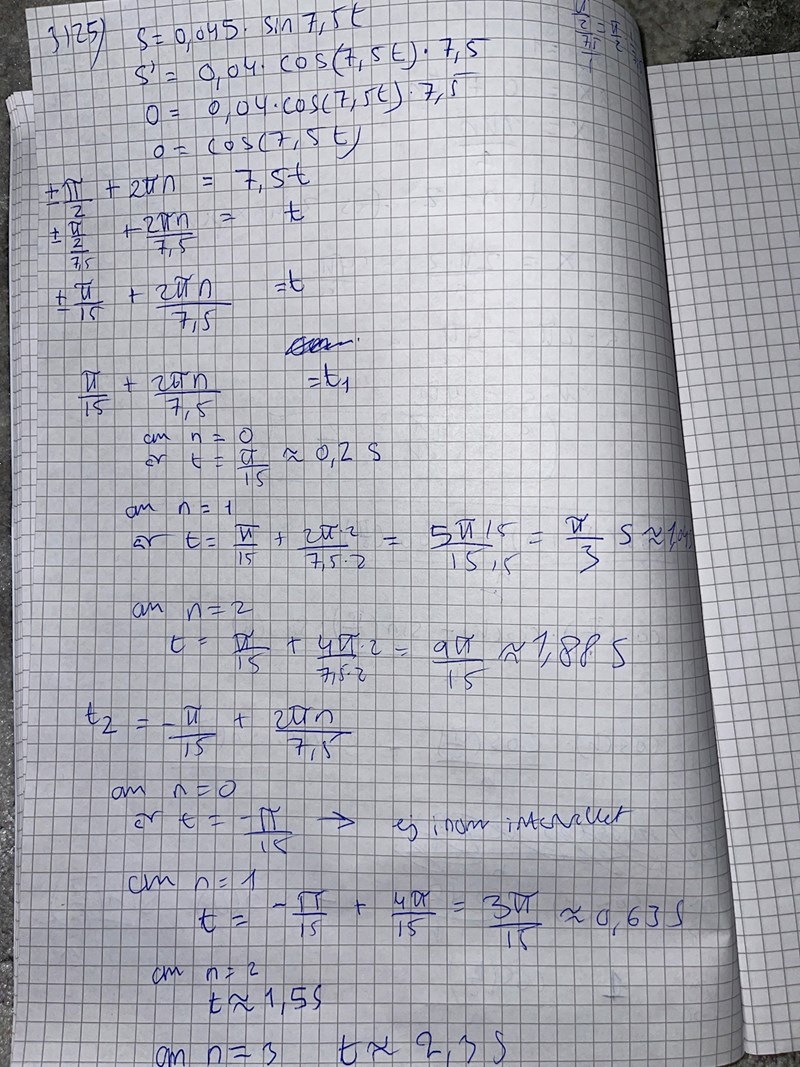 3125) S = 0,045 · sin 7,5t
S' = 0,04 · cos(7,5t) · 7,5
0 = 0,04 · cos(7,5t) · 7,5
0 = cos(7,5t)
±π/2 + 2πn = 7,5t
±π/2/7,5 + 2πn/7,5 = t
±π/15 + 2πn/7,5 = t
π/15 + 2πn/7,5 = t₁
om n = 0
är t = π/15 ≈ 0,2 s
om n = 1
är t = π/15 + 2π·2/7,5·2 = 5π/5/15/5 = π/3 s ≈
om n = 2
t = π/15 + 4π·2/7,5·2 = 9π/15 ≈ 1,88 s
t₂ = -π/15 + 2πn/7,5
om n = 0
är t = -π/15 → ej inom intervallet
om n = 1
t = -π/15 + 4π/15 = 3π/15 ≈ 0,63 s
om n = 2
t ≈ 1,5 s
om n = 3 t ≈ 2,3 s